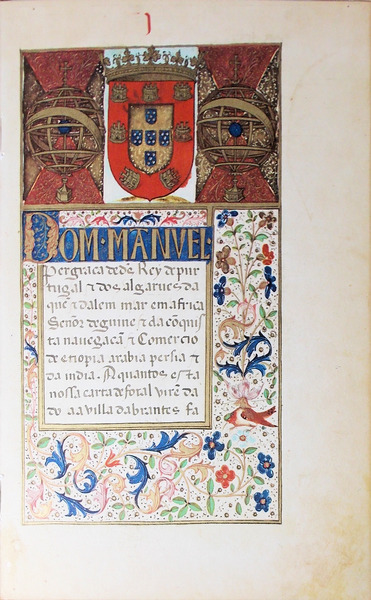 DOM·MANVEL·
Per graça de ds̃ Rey de pur
tugal ⁊ dos algarues da
quẽ ⁊ dalem mar em africa
Señor de guine ⁊ da cõquis
ta nauegacã ⁊ Comercio
de etiopia arabia persia ⁊
da india. A quantos esta
nossa carta de foral virẽ da
do aa villa dabrantes fa